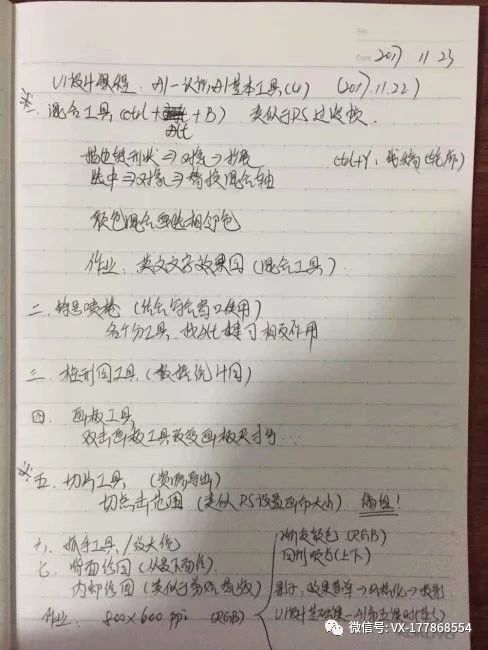 2017 11 23
UI设计课程：AI-认识AI基本工具(4) (2017.11.22)
一. 混合工具 (ctrl+Alt+B) 类似于PS过渡被
描边矩形状⇒对象⇒扩展 ctrl+Y：线稿(轮廓)
选中⇒对象⇒替换混合轴
颜色混合要选相邻色
作业：英文文字效果图(混合工具)
二. 符号喷枪 (结合符号窗口使用)
各个分工具，按Alt键可相反作用
三. 柱形图工具 (数据统计图)
四. 画板工具
双击画板工具改变画板尺寸...
五. 切片工具 (资源导出)
切点击范围 (类似PS设置画布大小) 编组！
六. 抓手工具/放大镜
七. 将面绘图 (从最下面绘)
内部绘图 (类似于剪贴蒙版)
作业： 800×600 ppi (RGB)
渐变颜色 (RGB)
(上下)
影子：效果菜单→风格化→投影
UI设计基础课-AI
微信号: VX-177868554